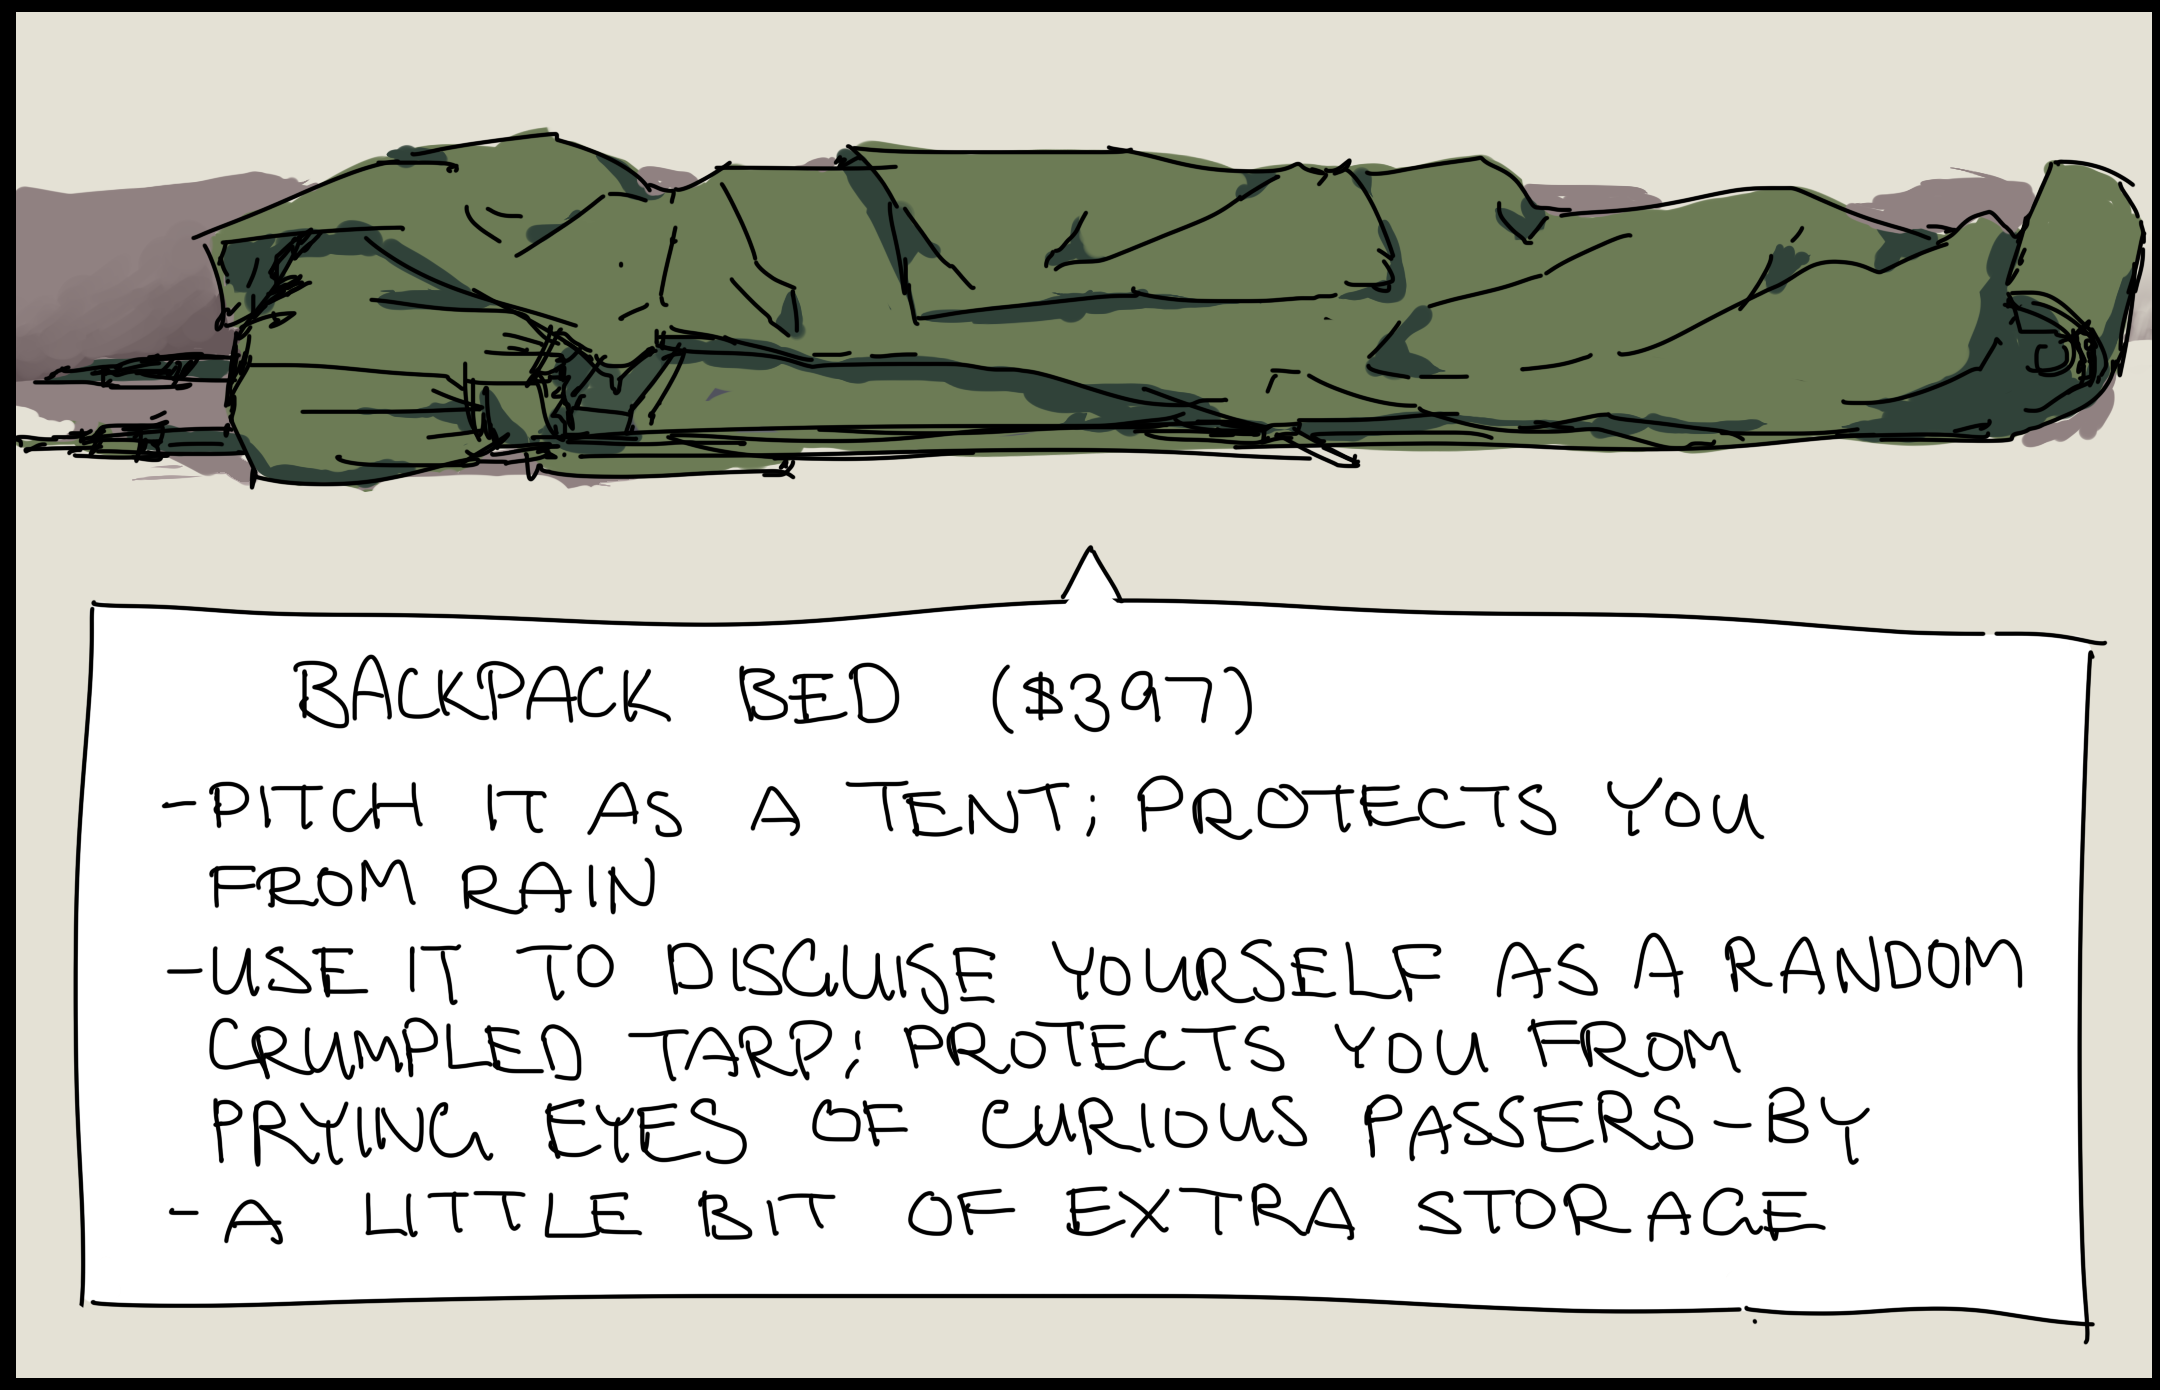 BACKPACK BED ($397)
-PITCH IT AS A TENT; PROTECTS YOU
FROM RAIN
-USE IT TO DISGUISE YOURSELF AS A RANDOM
CRUMPLED TARP; PROTECTS YOU FROM
PRYING EYES OF CURIOUS PASSERS-BY
-A LITTLE BIT OF EXTRA STORAGE